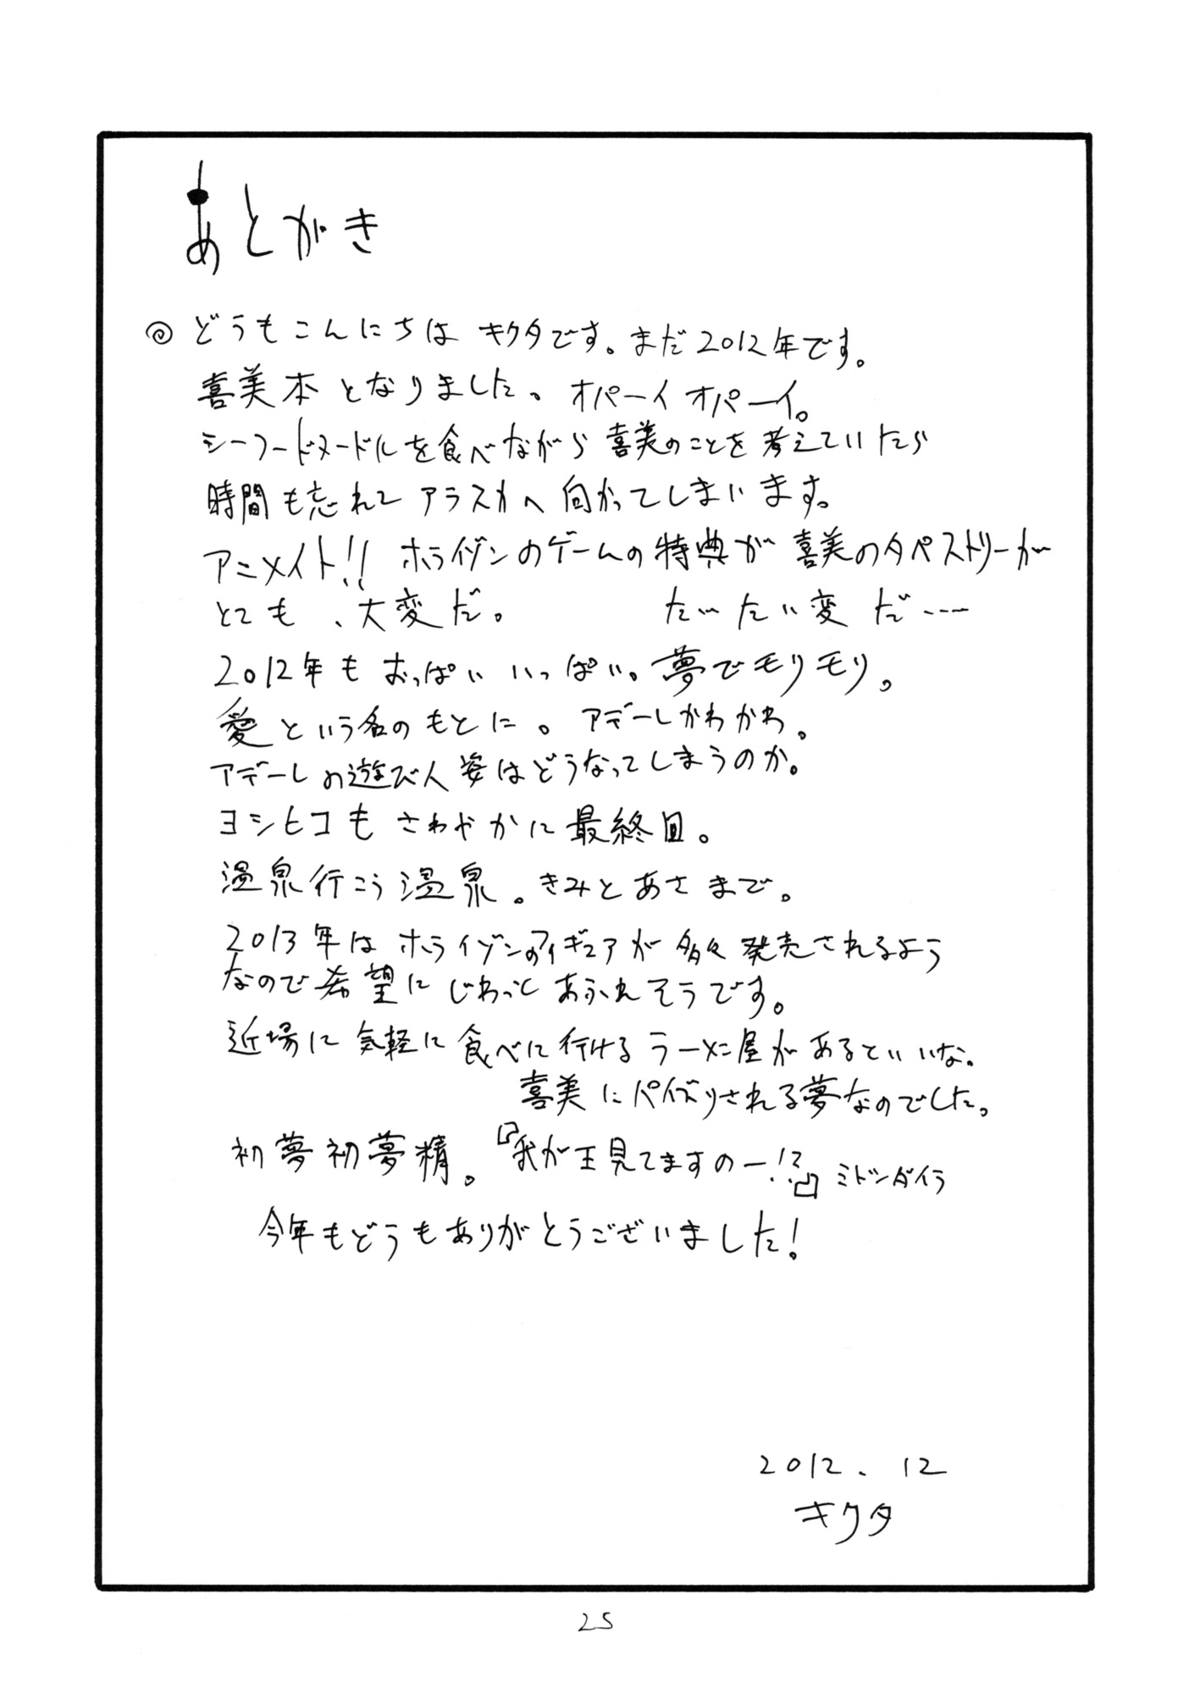 あとがき
◎ どうもこんにちは キクタです。まだ2012年です。
喜美本となりました。オパーイオパーイ。
シーフードヌードルを食べながら喜美のことを考えていたら
時間も忘れてアラスカへ向かってしまいます。
アニメイト!! ホライゾンのゲームの特典が喜美のタペストリーが
とても、大変だ。 だいたい変だ……
2012年もおっぱいいっぱい。夢でモリモリ。
愛という名のもとに。アデーレかわかわ。
アデーレの遊び人姿はどうなってしまうのか。
ヨシヒコもさわやかに最終回。
温泉行こう温泉。きみとあさまで。
2013年はホライゾンのフィギュアが多々発売されるよう
なので希望にじわっとあふれそうです。
近場に気軽に食べに行けるラーメン屋があるといいな。
喜美にパイズリされる夢なのでした。
初夢初夢精。『我が王見てますのー!?』ミトツダイラ
今年もどうもありがとうございました!
2012.12
キクタ
25